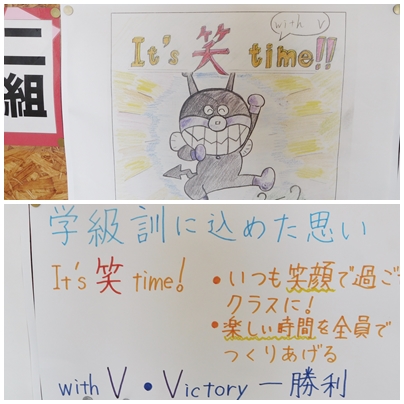 二組
with V
It's 笑 time!!
学級訓に込めた思い
It's 笑 time!
・いつも笑顔で過ご
クラスに!
・楽しい時間を全員で
つくりあげる
with V・Victory ー勝利